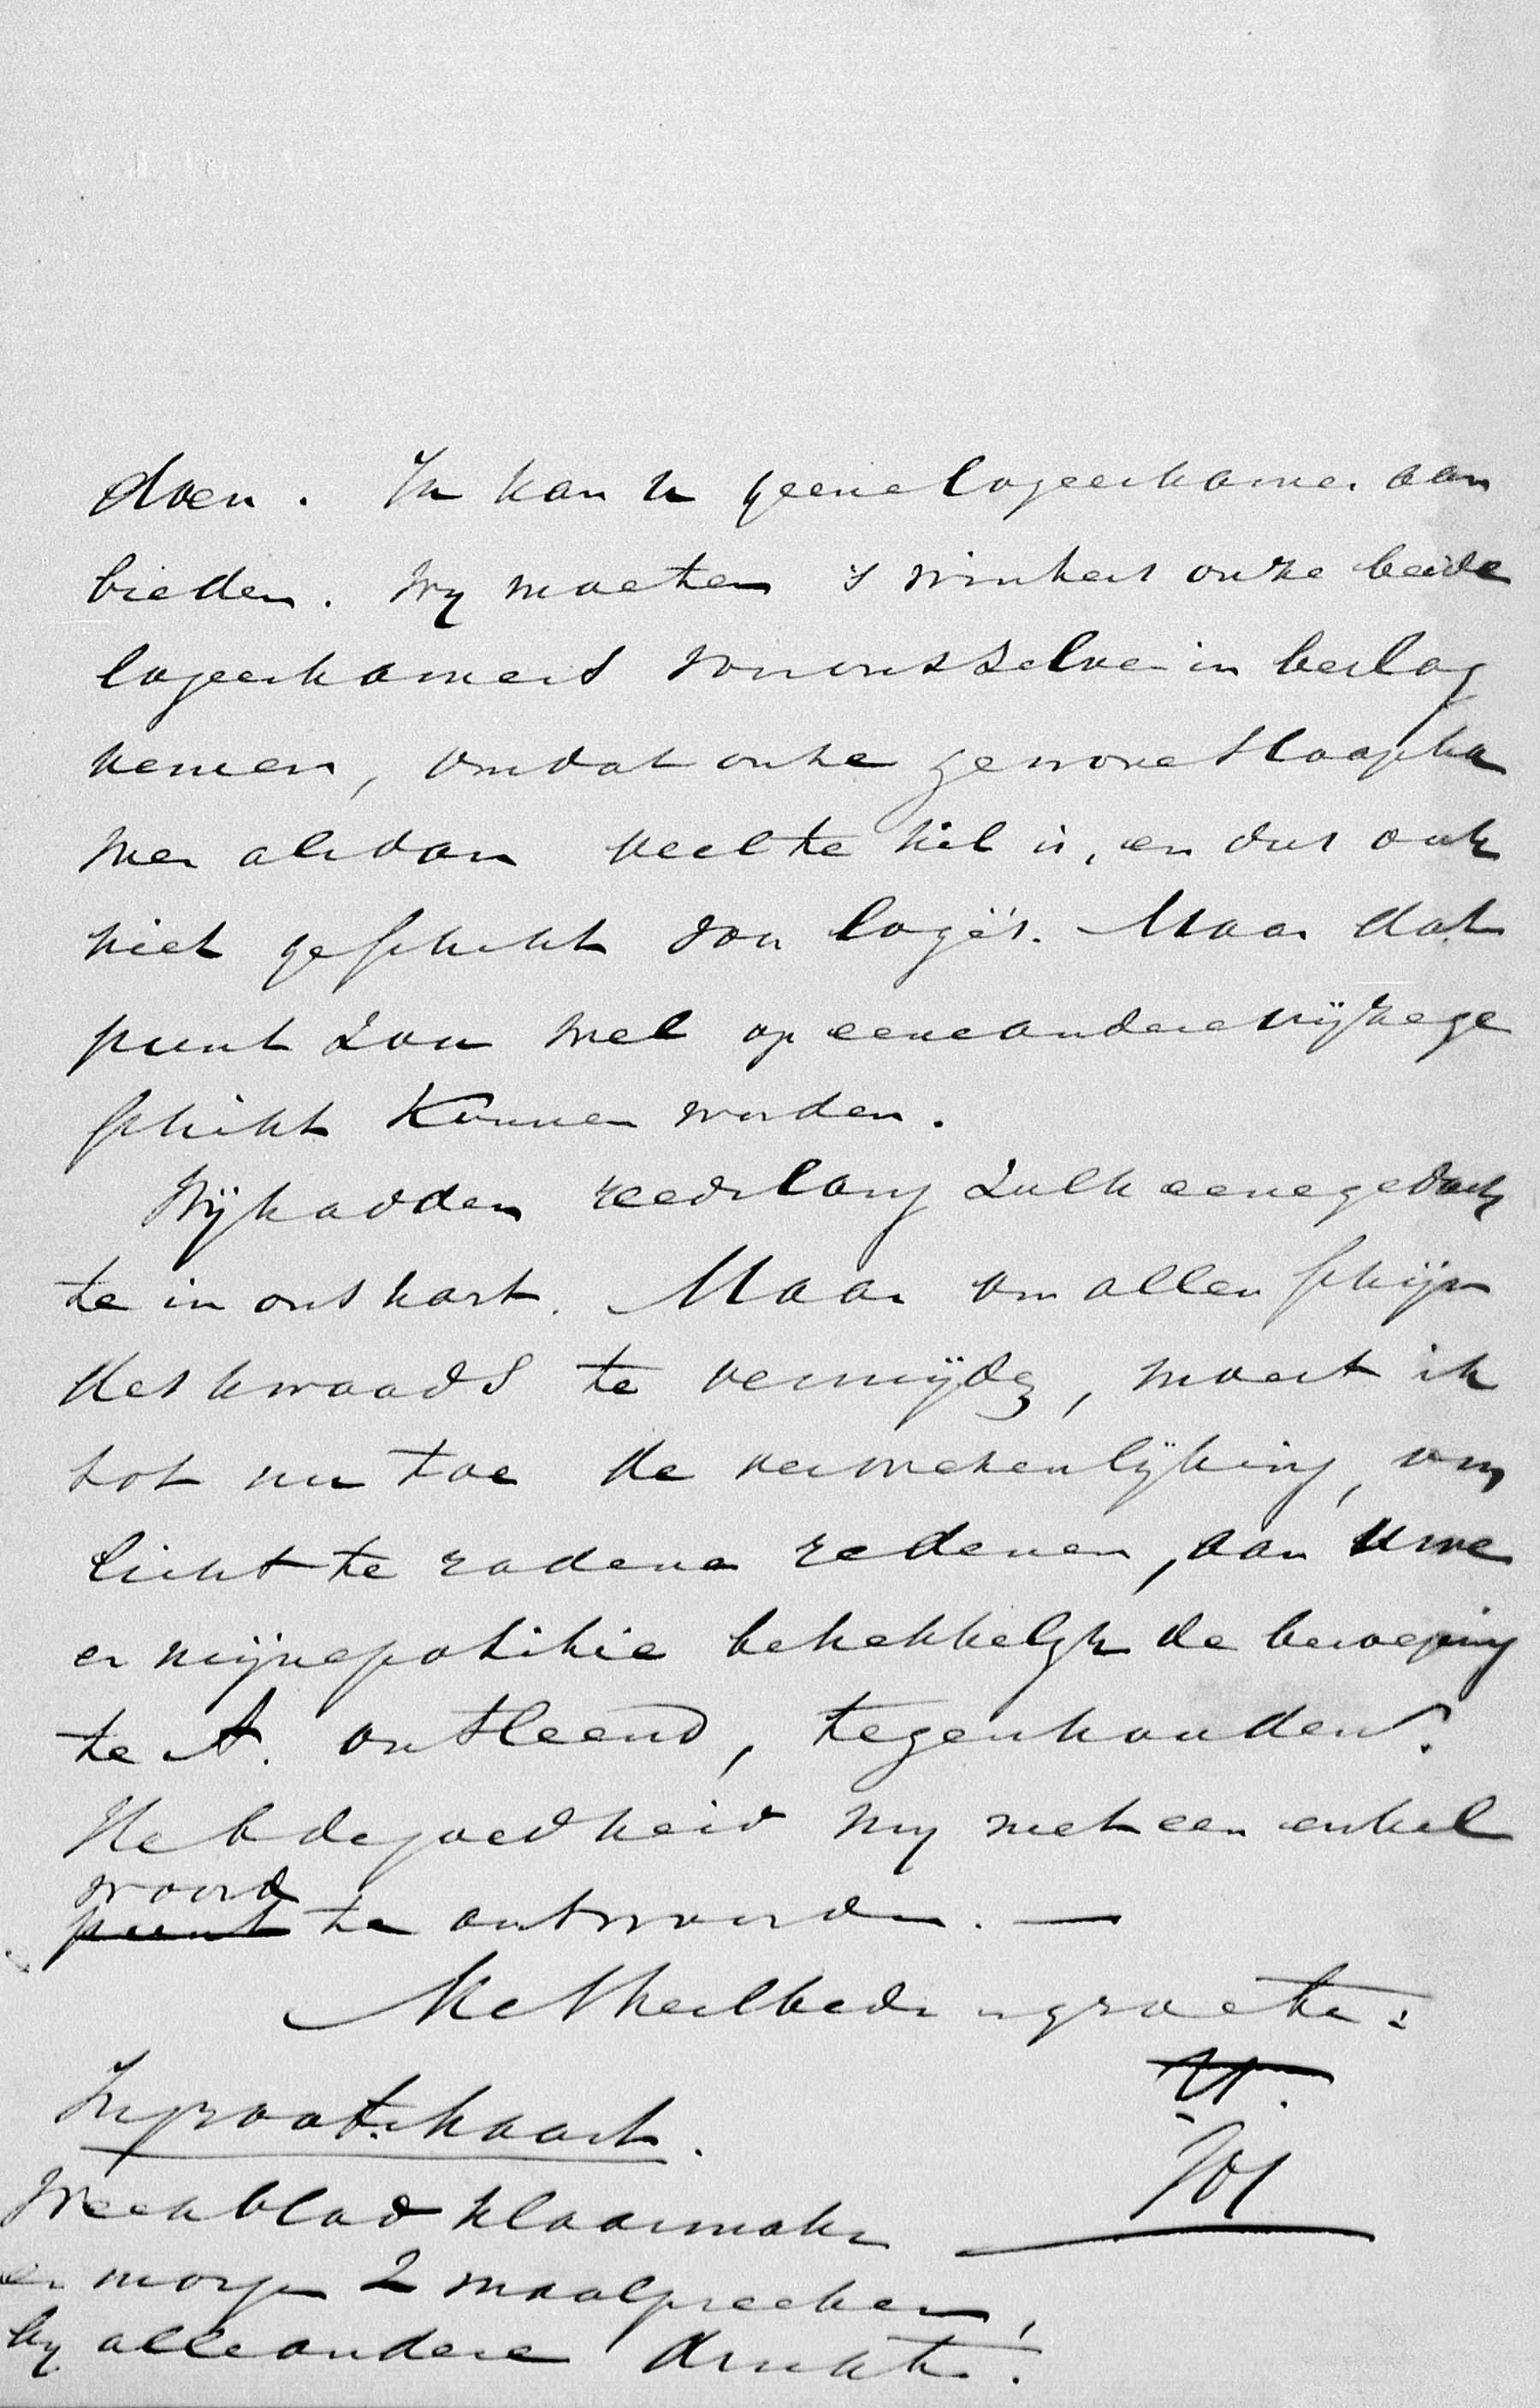 doen. Ik kan U geene logeerkamer aan
bieden. Wij moeten 's winters onze beide
logeerkamers voor ons zelven in beslag
nemen, omdat onze gewone slaapka
mer alsdan veel te kil is, en dus ook
niet geschikt voor logé's. Maar dat
punt zou wel op eene andere wijze ge
schikt kunnen worden.
Wij hadden reeds lang zulk eene gedach
te in ons hart. Maar om allen schijn
des kwaads te vermijden, moest ik
tot nu toe de verwezenlijking, om
licht te radene redenen, aan Uwe
en mijne positie betrekkelijk de beweging
te A. ontleend, tegenhouden.
Heb de goedheid mij met een enkel
woord
punt te antwoorden. —
Met heilbede en groete:
In groote haast.
Weekblad klaarmaken
en morgen 2 maal preeken,
bij alle andere drukte.